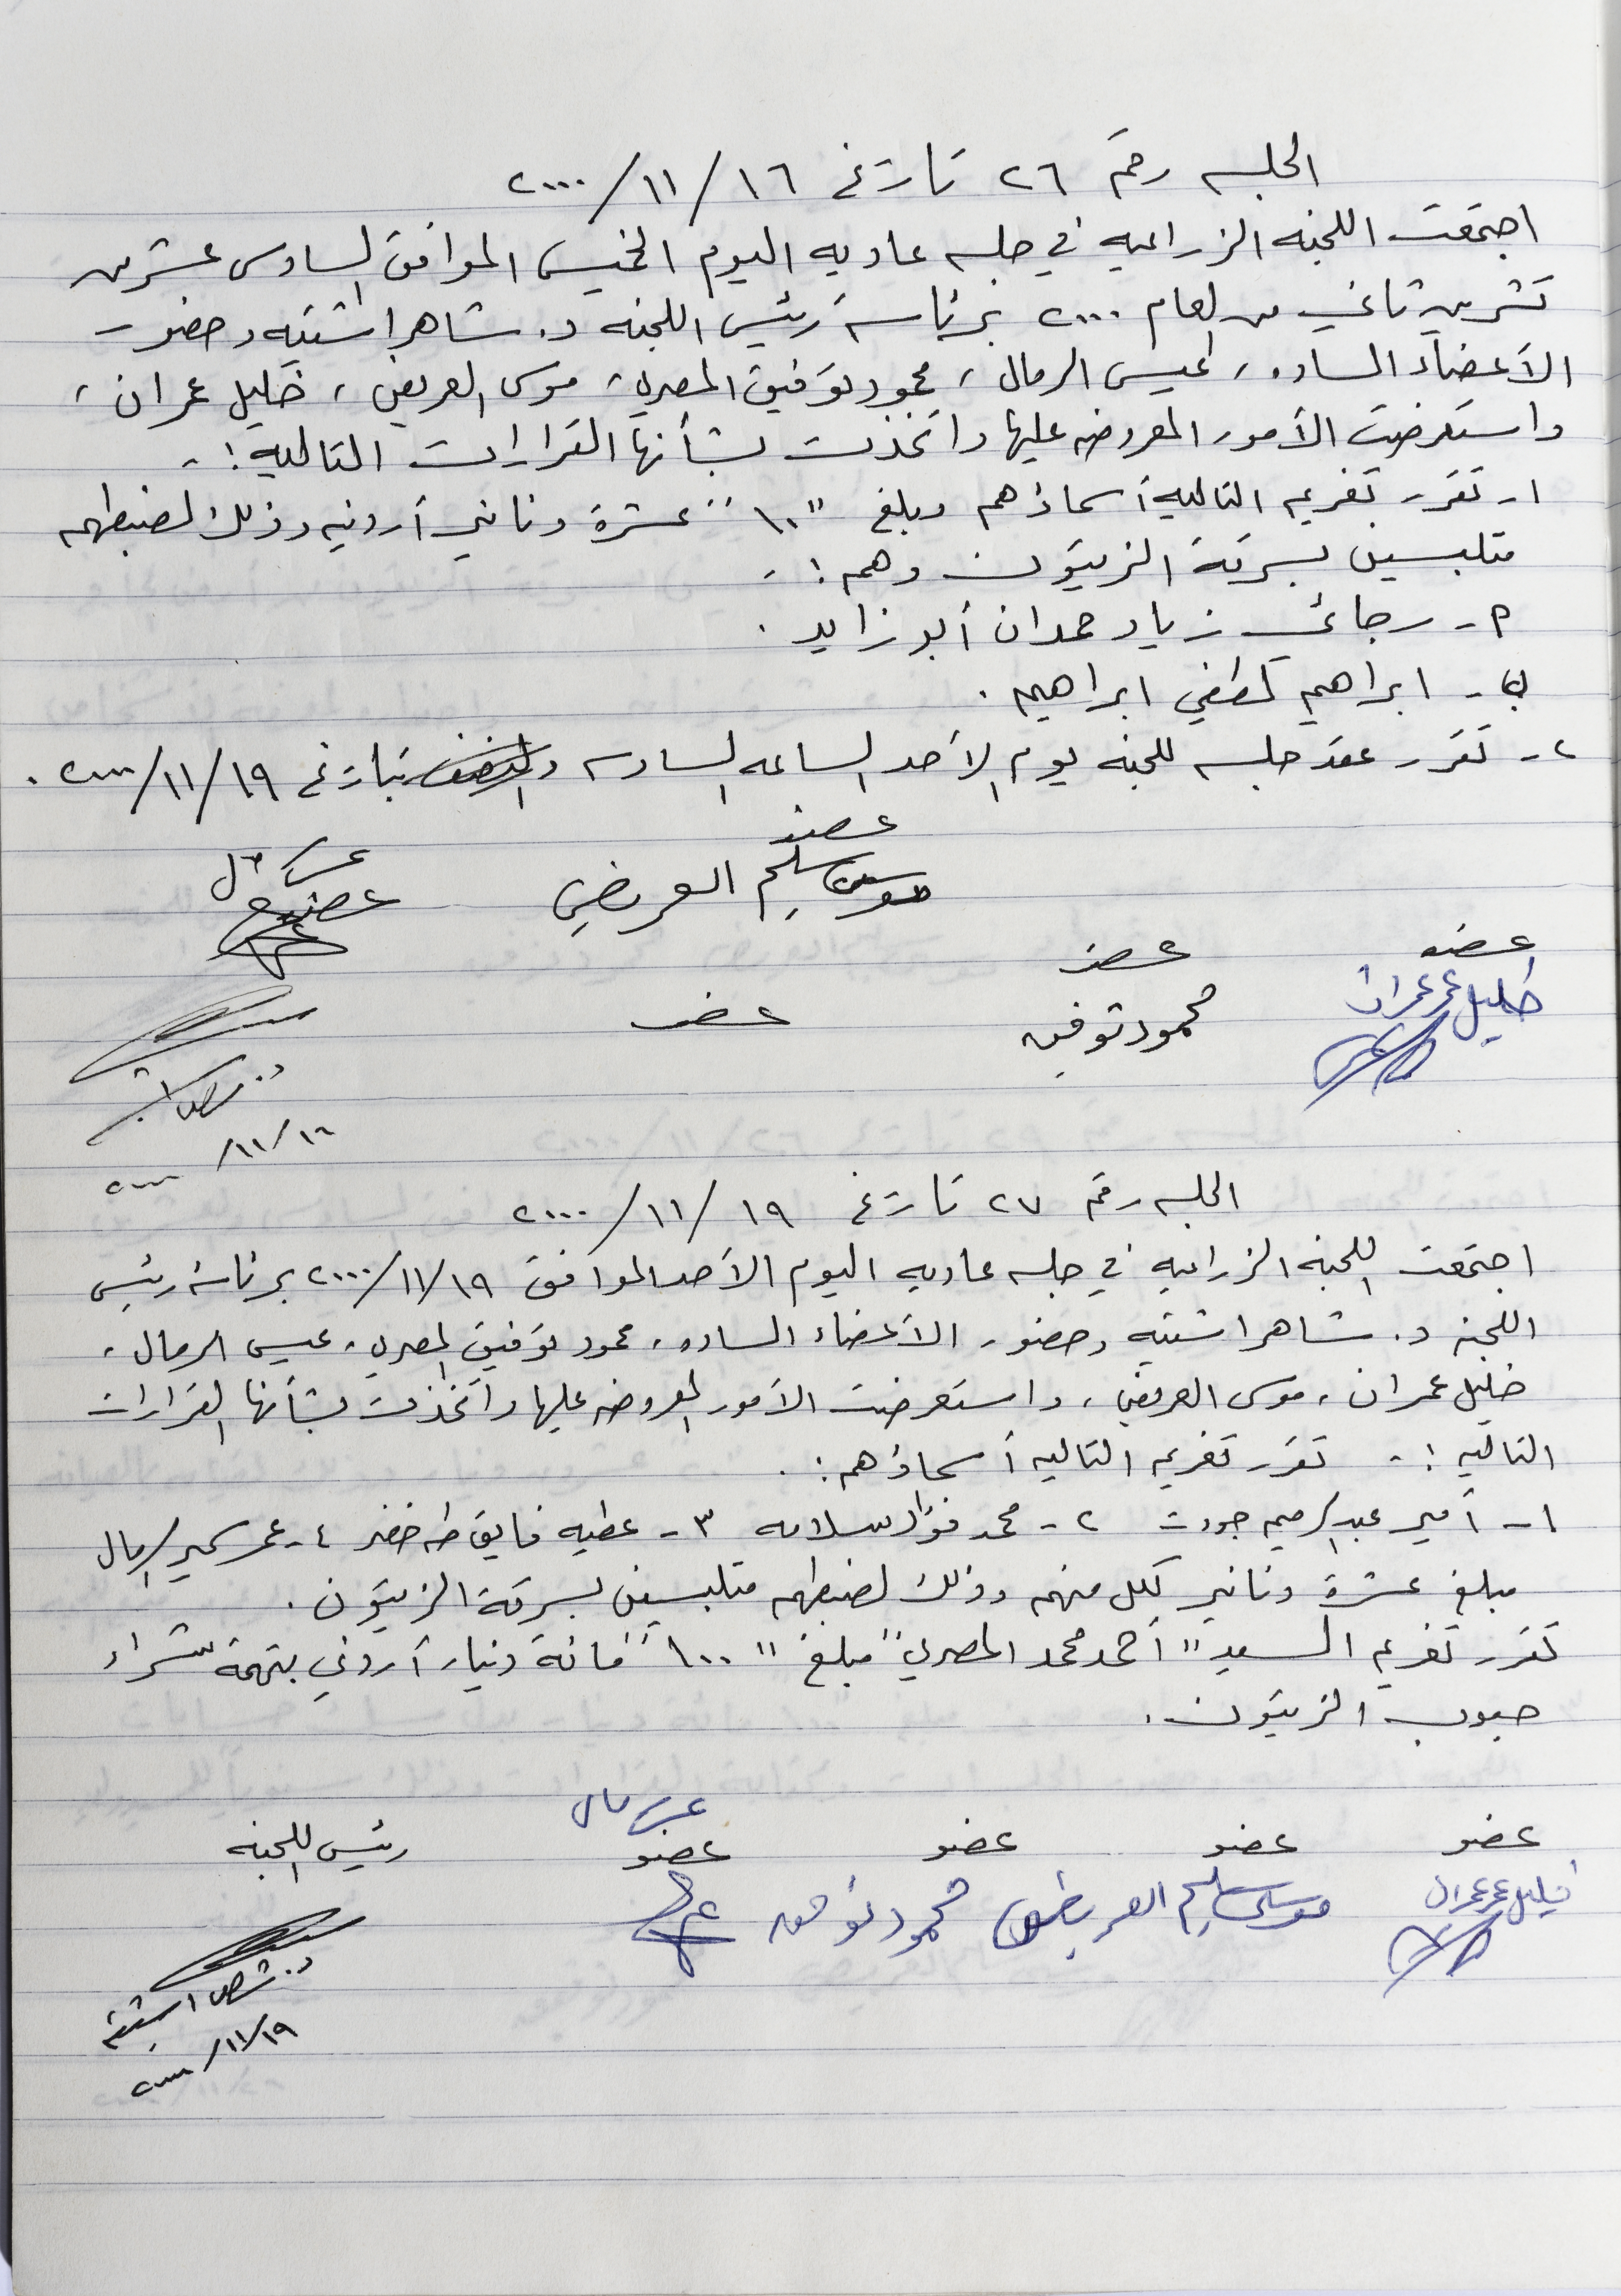 الجلسه رقم ٢٦ تاريخ ١٦/١١/٢٠٠٠
اجتمعت اللجنه الزراعيه في جلسه عاديه اليوم الخميس الموافق السادس عشر من
تشرين ثاني من العام ٢٠٠٠ برئاسة رئيس اللجنه د. شاهر اشتيه وحضور
الأعضاء الساده، عيسى الرمال، محمود توفيق المصري، موسى العريض، خليل عمران،
واستعرضت الأمور المعروضه عليها واتخذت بشأنها القرارات التاليه :-
١- تقرر تغريم التاليه أسماؤهم مبلغ "١٠" عشرة دنانير أردنيه وذلك لضبطهم
متلبسين بسرقة الزيتون وهم :-
أ- رجائي زياد حمدان أبو زايد .
ب- ابراهيم لطفي ابراهيم .
٢- تقرر عقد جلسه للجنه يوم الأحد الساعه السادسه بتاريخ ١٩/١١/٢٠٠٠ .
عضو
موسى سليم العريض
عضو
عضو
خليل عمر عمران
عضو
محمود توفيق
عضو
١٦/١١/٢٠٠٠
الجلسه رقم ٢٧ تاريخ ١٩/١١/٢٠٠٠
اجتمعت اللجنه الزراعيه في جلسه عاديه اليوم الأحد الموافق ١٩/١١/٢٠٠٠ برئاسة رئيس
اللجنه د. شاهر اشتيه وحضور الأعضاء الساده، محمود توفيق المصري، عيسى الرمال،
خليل عمران، موسى العريض، واستعرضت الأمور المعروضه عليها واتخذت بشأنها القرارات
التاليه :- تقرر تغريم التاليه أسماؤهم :.
١- أمير عبدالرحيم جودت ٢- محمد فؤاد سلامه ٣- عطيه فايق طه خضر ٤- عمر سمير الرمال
مبلغ عشرة دنانير لكل منهم وذلك لضبطهم متلبسين بسرقة الزيتون .
تقرر تغريم السيد "أحمد محمد المصري" مبلغ "١٠٠" مائة دينار أردني بتهمة شراء
حبوب الزيتون .
عضو عضو عضو عضو رئيس اللجنه
خليل عمر عمران موسى سليم العريض محمود توفيق
د. شاهر اشتيه
١٩/١١/٢٠٠٠